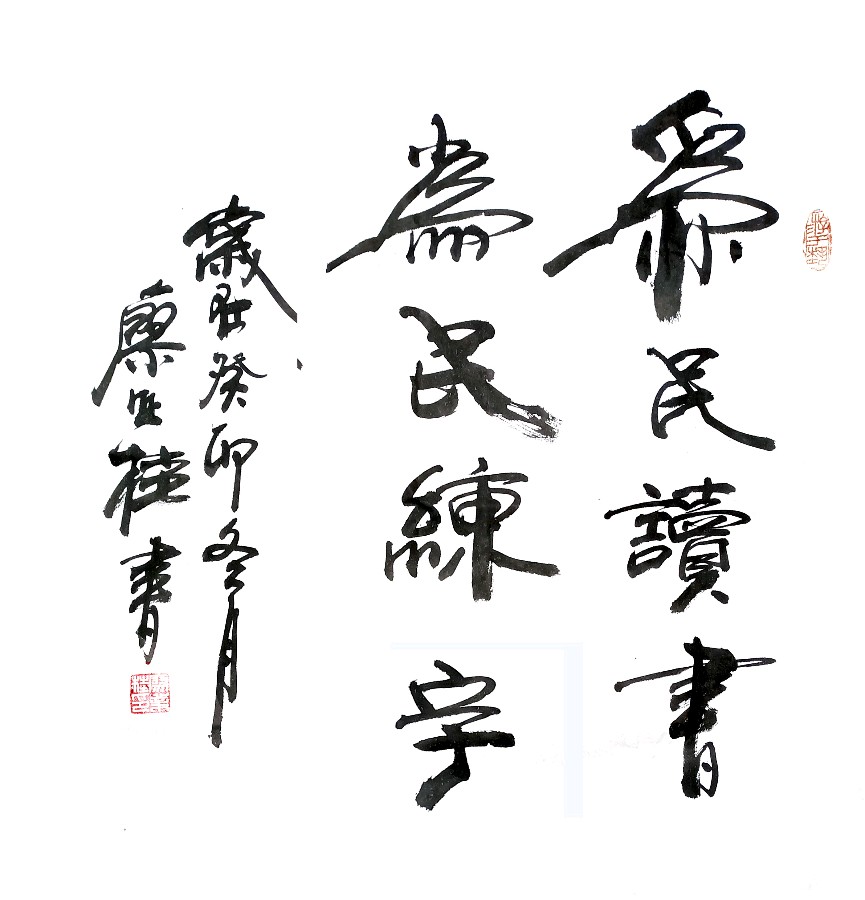 為民讀書
為民練字
歲在癸卯冬月
桂書